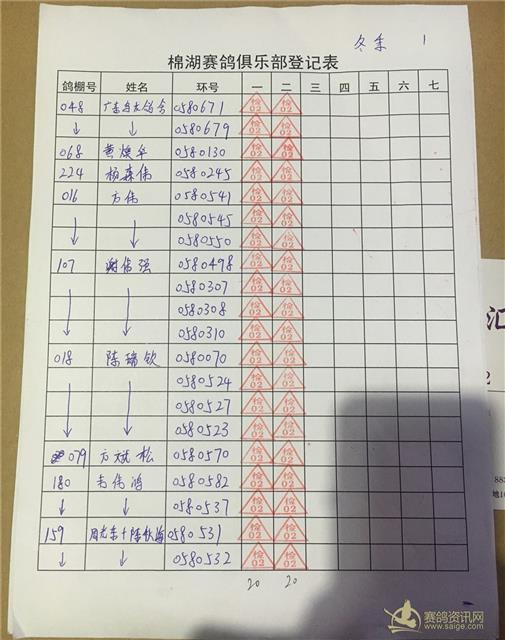 冬季 1
棉湖赛鸽俱乐部登记表
鸽棚号 姓名 环号 一 二 三 四 五 六 七
048 0580671 检02 检02
↓ ↓ 0580679 检02 检02
068 黄焕华 0580130 检02 检02
224 杨森伟 0580245 检02 检02
016 方伟 0580541 检02 检02
0580545 检02 检02
↓ ↓ 0580550 检02 检02
107 谢伟强 0580498 检02 检02
0580307 检02 检02
0580308 检02 检02
↓ ↓ 0580310 检02 检02
018 陈瑞钦 0580070 检02 检02
0580524 检02 检02
0580527 检02 检02
↓ ↓ 0580523 检02 检02
079 方斌松 0580570 检02 检02
180 伟鸿 0580582 检02 检02
↓ ↓ 0580537 检02 检02
159 0580531 检02 检02
↓ ↓ 0580532 检02 检02
20 20
汇
2
883
地址
赛鸽资讯网
www.saige.com